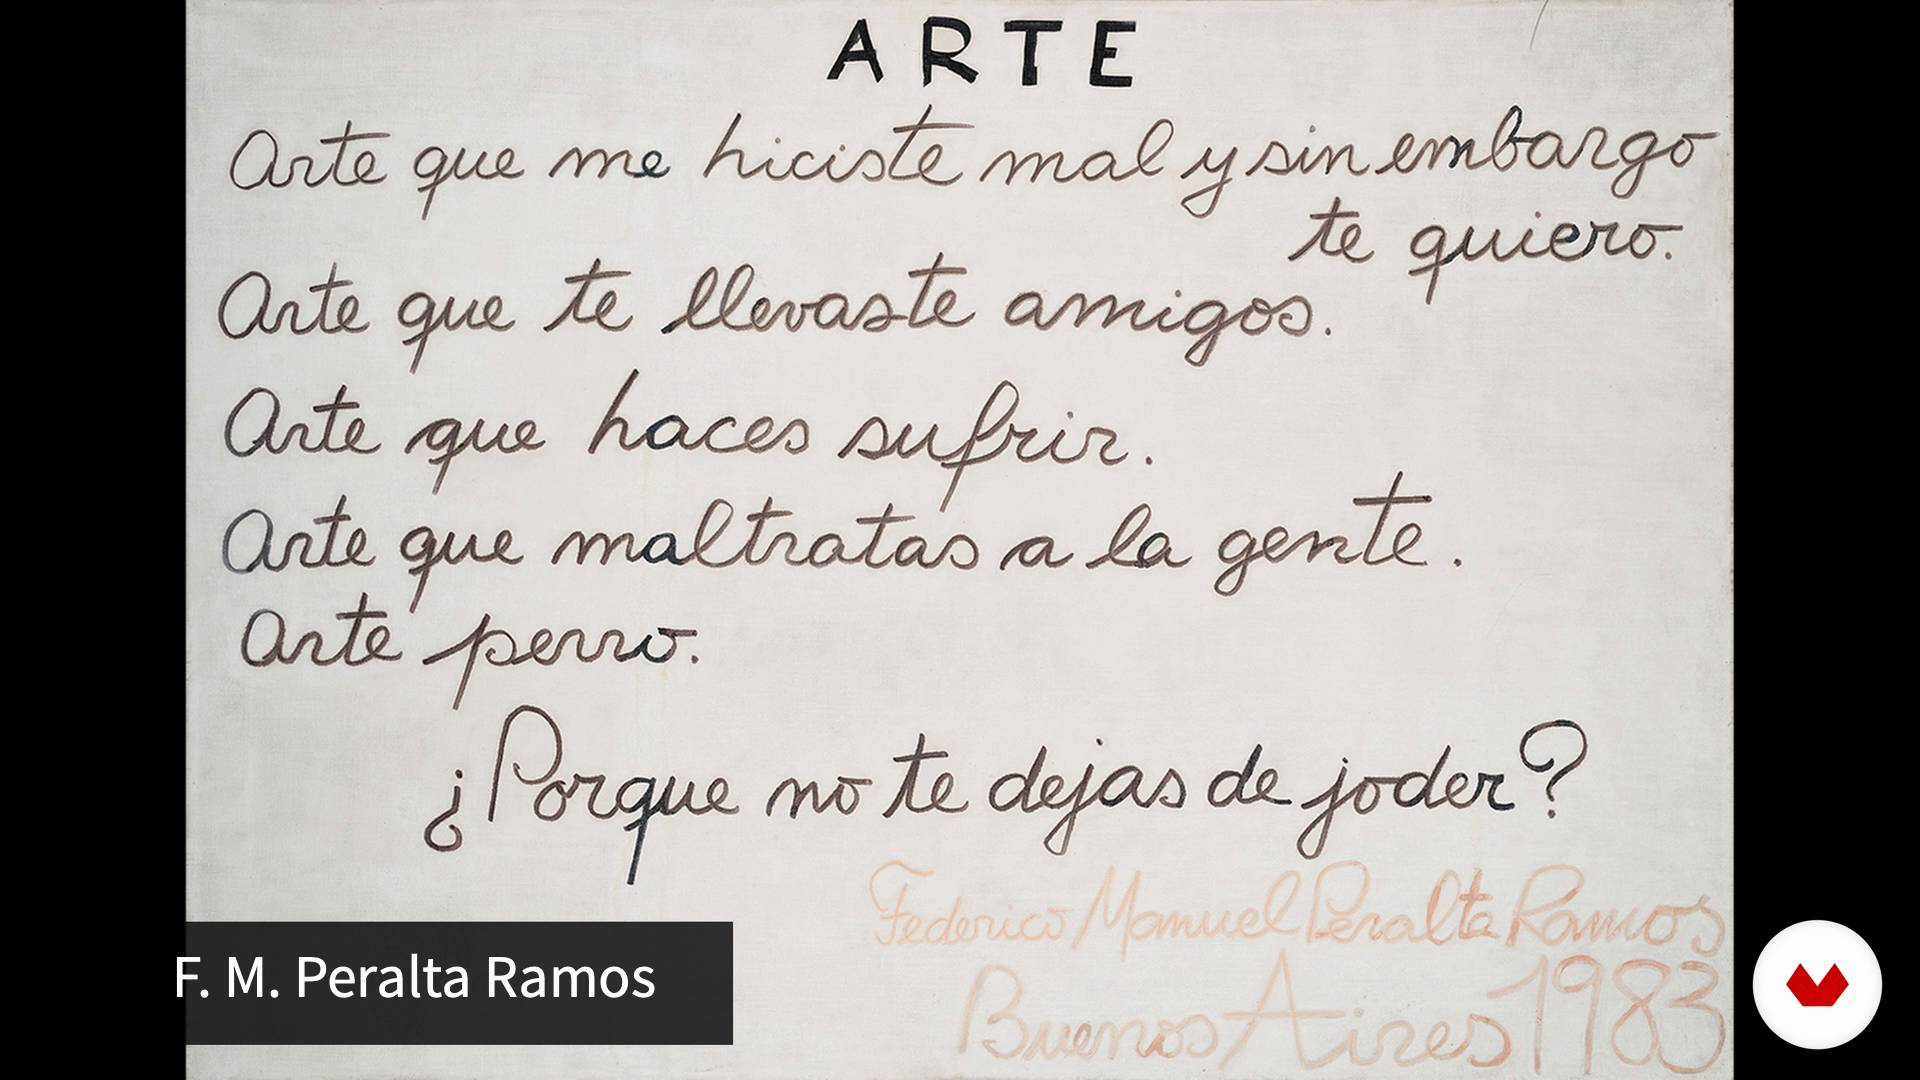 ARTE
Arte que me hiciste mal y sin embargo
te quiero.
Arte que te llevaste amigos.
Arte que haces sufrir.
Arte que maltratas a la gente.
Arte perro.
¿Porque no te dejas de joder?
Federico Manuel Peralta Ramos
Buenos Aires 1983
F. M. Peralta Ramos